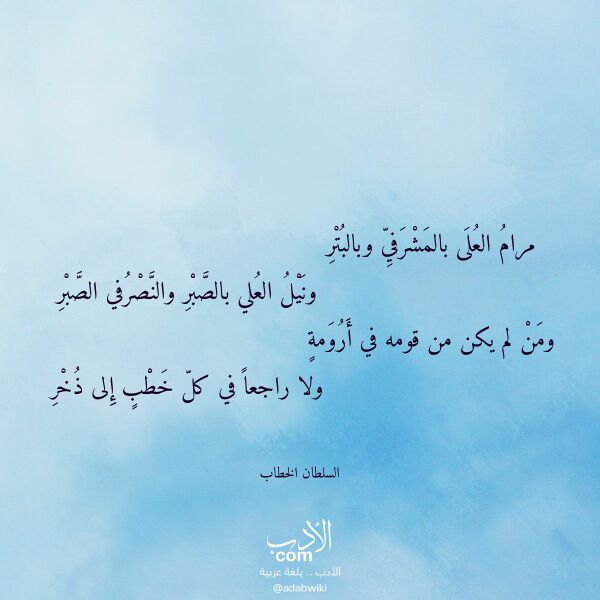 مرامُ العُلَى بالمَشْرَفيِّ وبالبُتْرِ
ونَيْلُ العُلي بالصَّبْرِ والنَّصْرُفي الصَّبْرِ
ومَنْ لم يكن من قومه في أَرُوَمةٍ
ولا راجعاً في كلّ خَطْبٍ إِلى ذُخْرِ
السلطان الخطاب
الأدب
com
الأدب .. بلغة عربية
@adabwiki